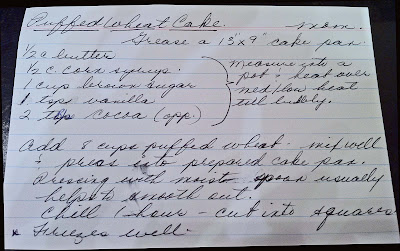 Puffed Wheat Cake. Mom.
Grease a 13"x9" cake pan.
½ c butter
½ c. corn syrup.
1 cup brown sugar
1 tsps vanilla
2 tbs cocoa (opp.)
Measure into a
pot & heat over
med/low heat
till bubbly.
Add 8 cups puffed wheat. mix well
& press into prepared cake pan.
Pressing with moist spoon usually
helps to smooth out.
Chill 1 hour - cut into squares
* Freezes well.